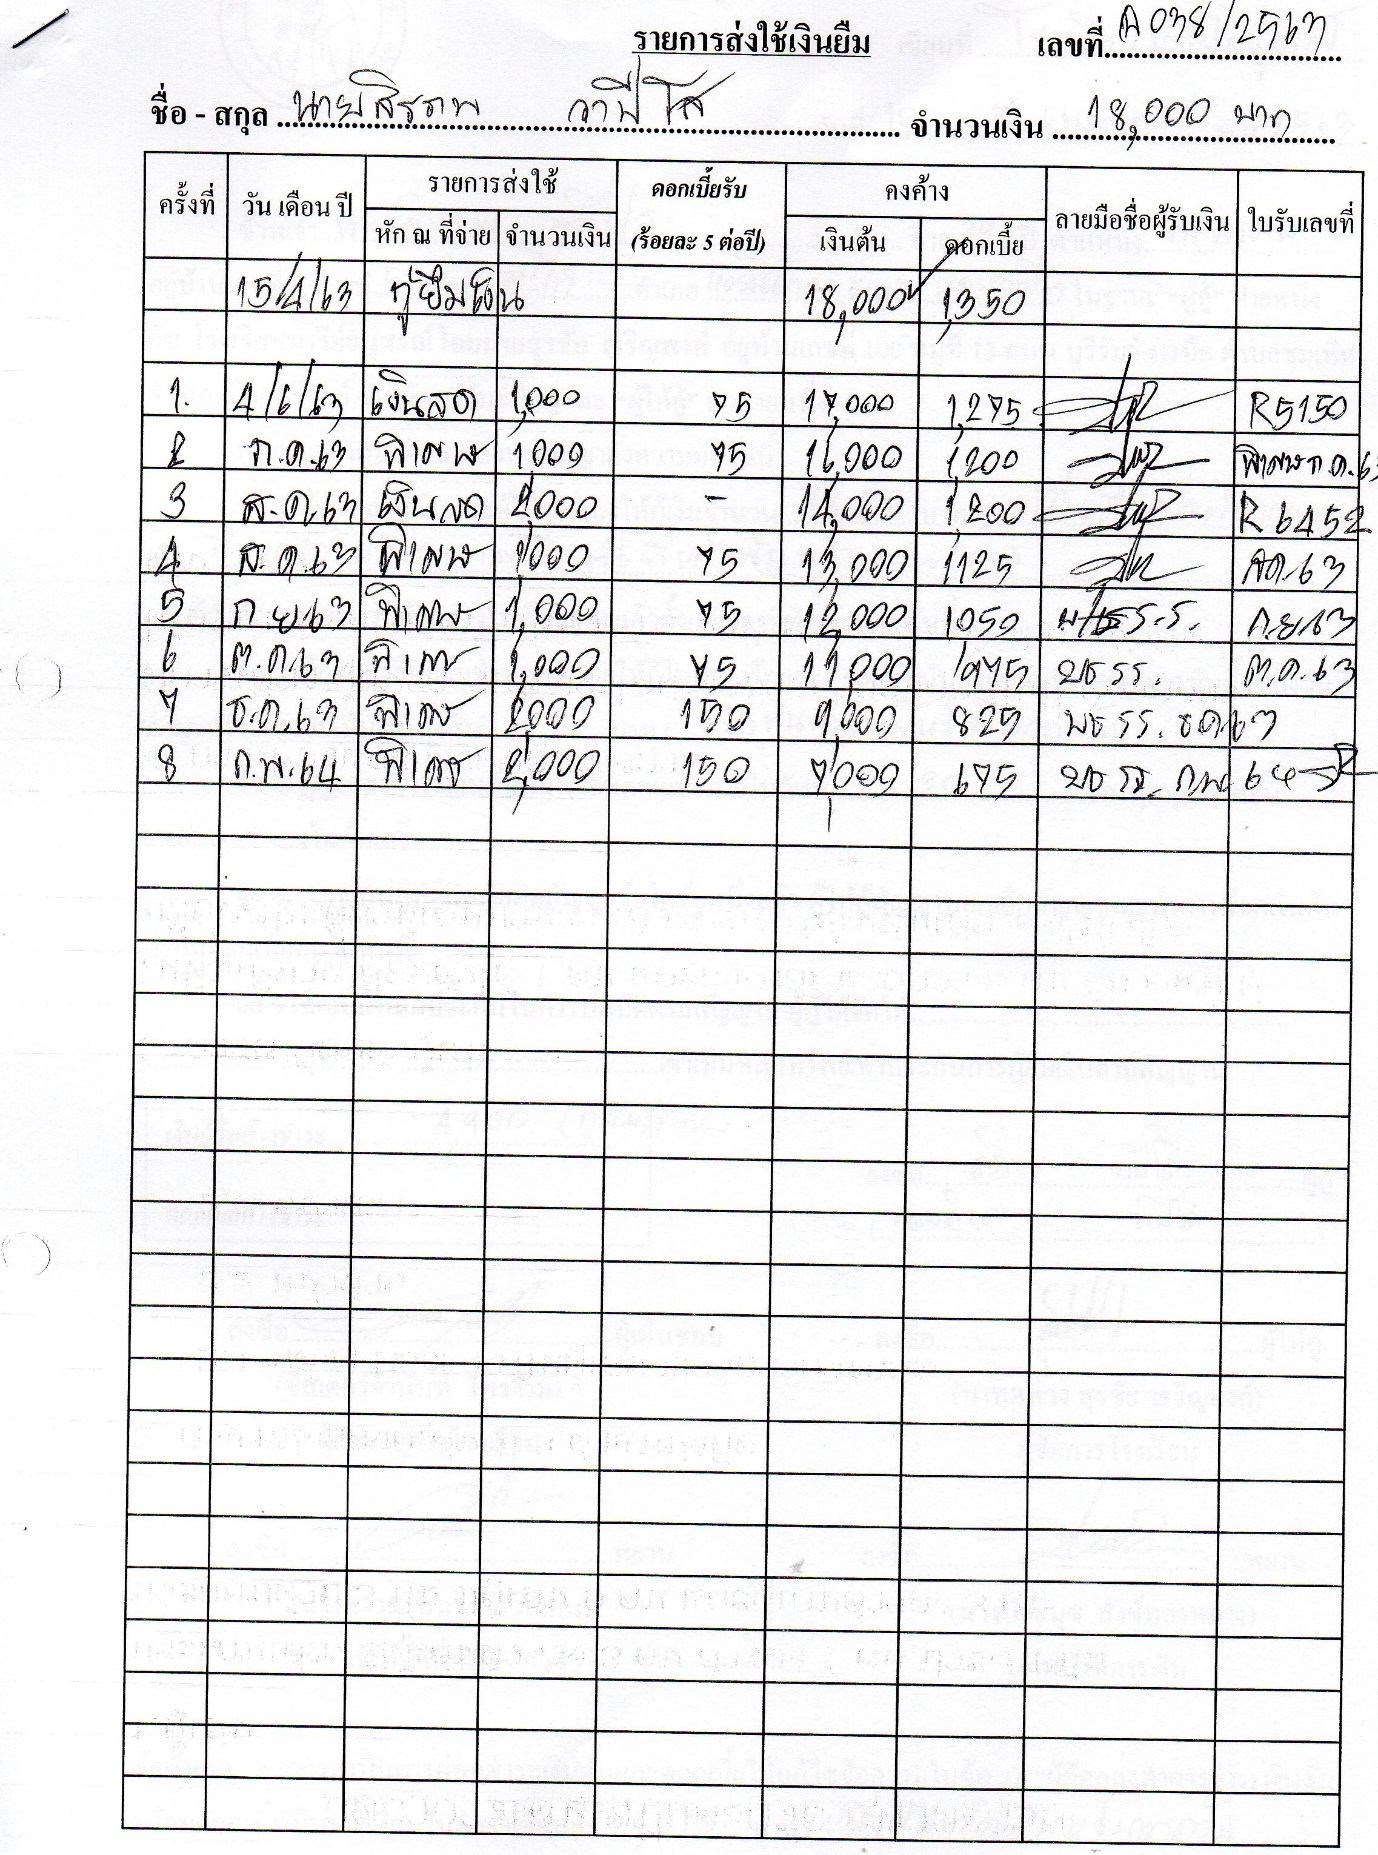 รายการส่งใช้เงินยืม เลขที่ A038/2563
ชื่อ - สกุล นายสิรภพ วาปีโส จำนวนเงิน 18,000 บาท
ครั้งที่ วัน เดือน ปี รายการส่งใช้ ดอกเบี้ยรับ คงค้าง ลายมือชื่อผู้รับเงิน ใบรับเลขที่
หัก ณ ที่จ่าย จำนวนเงิน (ร้อยละ 5 ต่อปี) เงินต้น ดอกเบี้ย
15/4/63 กู้ยืมเงิน 18,000 1,350
1. 4/6/63 เงินสด 1,000 75 17,000 1,275 R5150
2 ก.ค.63 พิเศษ 1,000 75 16,000 1,200 พิเศษ ก.ค.63
3 ส.ค.63 เงินสด 2,000 - 14,000 1,200 R6452
4 ส.ค.63 พิเศษ 1,000 75 13,000 1125 สค.63
5 ก.ย.63 พิเศษ 1,000 75 12,000 1050 ก.ย.63
6 ต.ค.63 พิเศษ 1,000 75 11,000 975 ต.ค.63
7 ธ.ค.63 พิเศษ 2,000 150 9,000 825 ธค.63
8 ก.พ.64 พิเศษ 2,000 150 7,000 675 ก.พ. 64